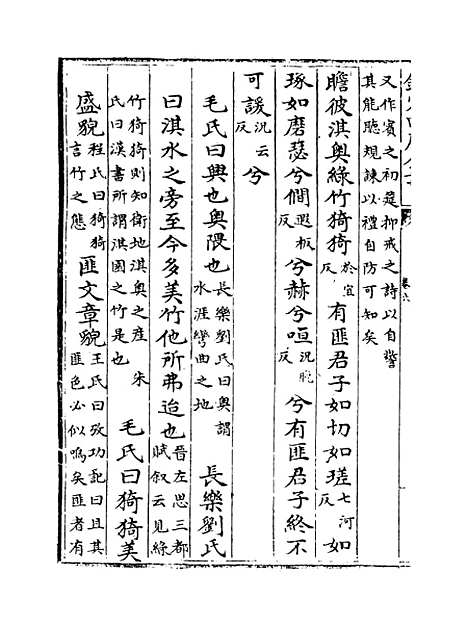 又作賓之初筵抑戒之詩以自警
其能聽規諫以禮自防可知矣
瞻彼淇奥綠竹猗猗於宜反有匪君子如切如瑳七河反如
琢如磨瑟兮僩遐板反兮赫兮咺況晚反兮有匪君子終不
可諼況云反兮
毛氏曰興也奥隈也長樂劉氏曰奥謂水涯彎曲之地長樂劉氏
曰淇水之旁至今多美竹他所弗迨也晉左思三都賦叙云見綠
竹猗猗則知衛地淇奥之產朱氏曰漢書所謂淇園之竹是也毛氏曰猗猗美
盛貌程氏曰猗猗言竹之態匪文章貌王氏曰攷功記曰且其匪色必似鳴矣匪者有